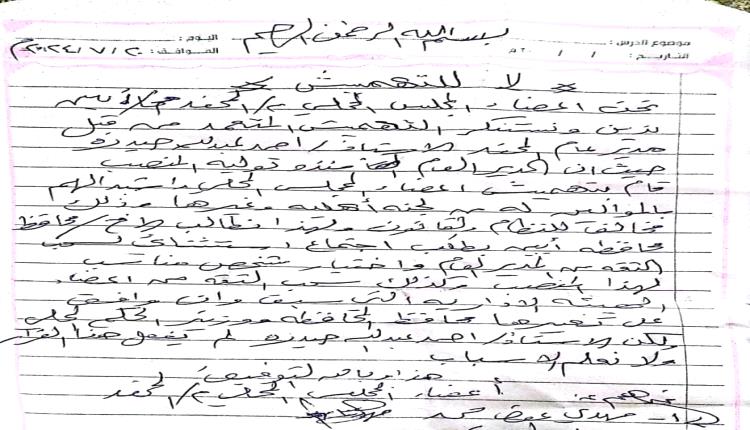 بسم الله الرحمن الرحيم
موضوع الدرس: اليوم:
التاريخ: / / ٢٠ م الموافق: ٢٠٢٤/٧/٢٠م
لا للتهميش
نحن اعضاء المجلس المحلي م/ المحفد م/ أبين
ندين ونستنكر التهميش المتعمد من قبل
مدير عام المحفد الاستاذ/ احمد عبدالله حيدره
حيث ان المدير العام منذو توليه المنصب
قام بتهميش اعضاء المجلس المحلي واستبدالهم
بالموالين له من لجنه أهليه وغيرها وذلك
مخالف للنظام والقانون ولهذا نطالب الاخ/ محافظ
محافظه أبين بطلب اجتماع استثنائي لسحب
الثقه من المدير العام واختيار شخص مناسب
لهذا المنصب وكذلك سحب الثقه من اعضاء
الهيئه الاداريه التي سبق وان وافق
على تغيرها محافظ المحافظه ووزير الحكم المحلي
ولكن الاستاذ/ احمد عبدالله حيدره لم يفعل هذا القرار
ولا نعلم الاسباب
هذا وبالله التوفيق
عنهم أعضاء المجلس المحلي م/ المحفد
مهدي عوض محمد